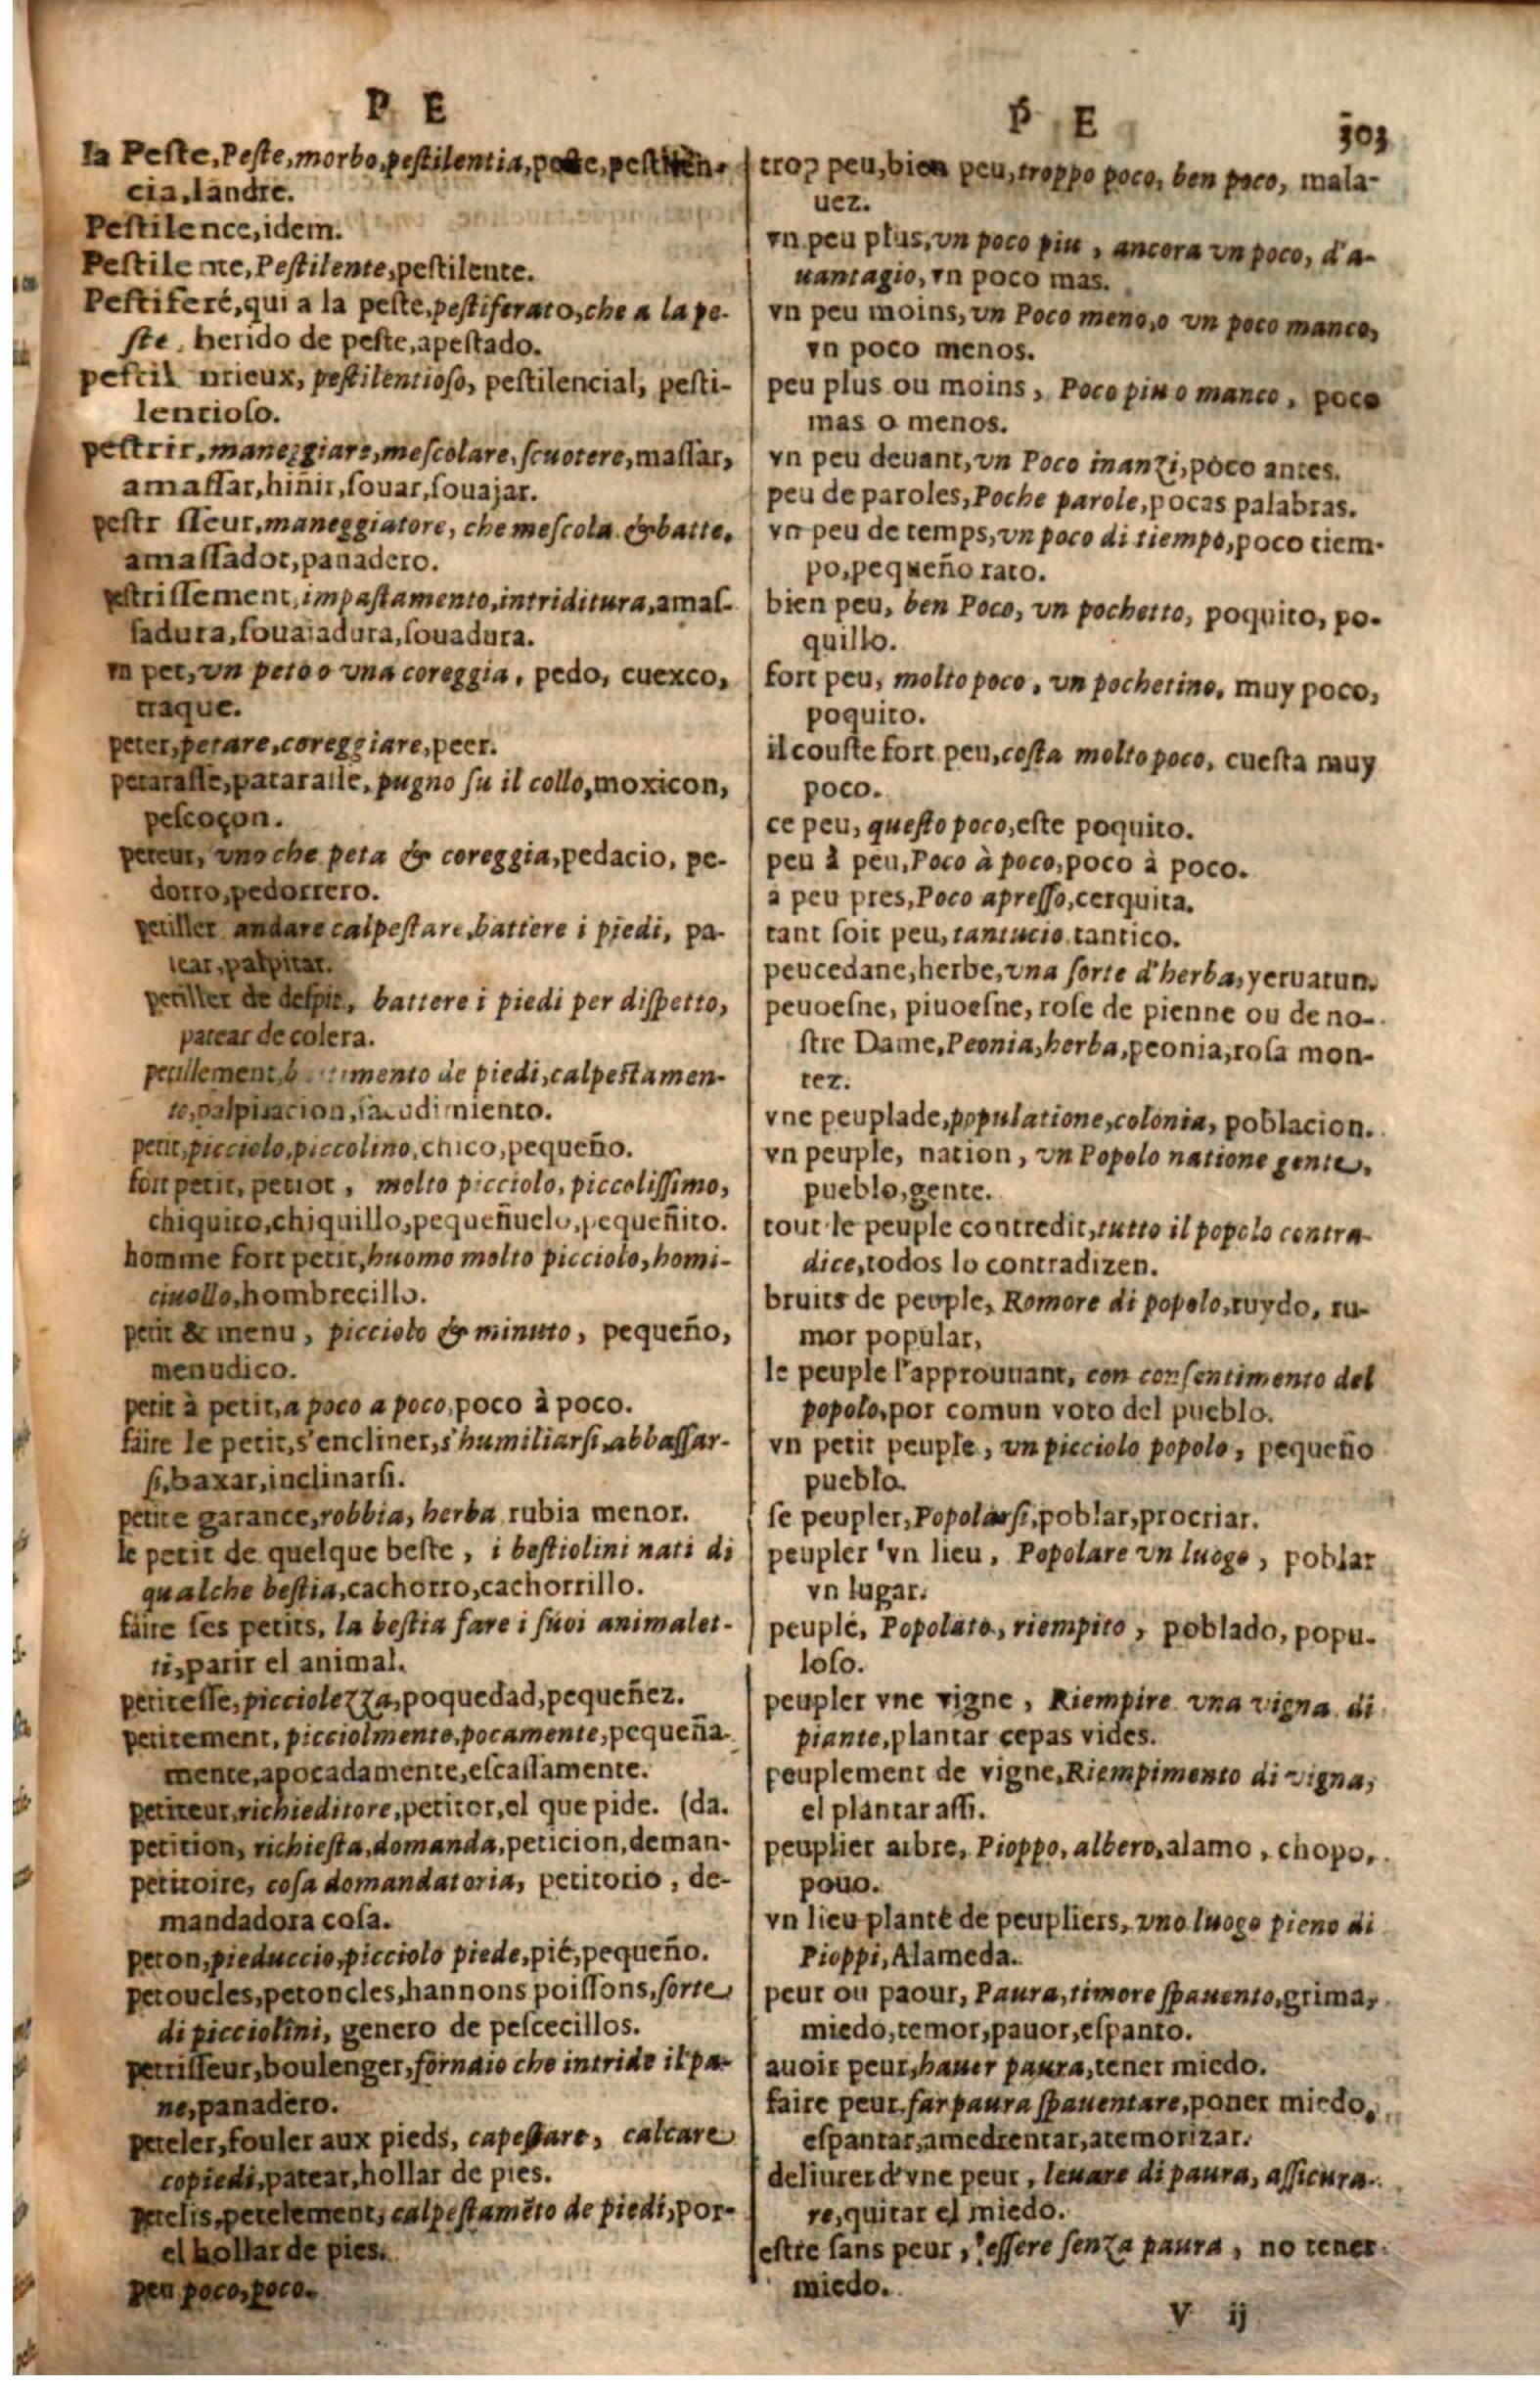 P E
la Peste, Peste, morbo, pestilentia, peste, pestilen-
cia, landre.
Pestilence, idem.
Pestilente, Pestilente, pestilente.
Pestiferé, qui a la peste, pestiferato, che a la pe-
ste, herido de peste, apestado.
pestil ntieux, pestilentioso, pestilencial, pesti-
lencioso.
pestrir, maneggiare, mescolare, scuotere, massar,
amassar, hiñir, souar, souajar.
pestr sseur, maneggiatore, che mescola & batte,
amassador, panadero.
estrissement, impastamento, intriditura, amas-
sadura, souaiadura, souadura.
vn pet, vn peto o vna coreggia, pedo, cuexco,
traque.
peter, petare, coreggiare, peer.
petarasse, patarasse, pugno su il collo, moxicon,
pescoçon.
peteur, vno che peta & coreggia, pedacio, pe-
dorro, pedorrero.
petiller andare calpestare, battere i piedi, pa-
tear, palpitar.
petiller de despit, battere i piedi per dispetto,
patear de colera.
petillement, b mento de piedi, calpestamen-
to, palpitacion, sacudimiento.
petit, picciolo, piccolino, chico, pequeño.
fort petit, petiot, molto picciolo, piccolissimo,
chiquito, chiquillo, pequeñuelo, pequeñito.
homme fort petit, huomo molto picciolo, homi-
ciuollo, hombrecillo.
petit & menu, picciolo & minuto, pequeño,
menudico.
petit à petit, a poco a poco, poco à poco.
faire le petit, s'encliner, s'humiliarsi, abbassar-
si, baxar, inclinarsi.
petite garance, robbia, herba rubia menor.
le petit de quelque beste, i bestiolini nati di
qualche bestia, cachorro, cachorrillo.
faire ses petits, la bestia fare i suoi animalet-
ti, parir el animal.
petitesse, picciolezza, poquedad, pequeñez.
petitement, picciolmente, pocamente, pequeña-
mente, apocadamente, escassamente.
petiteur, richieditore, petitor, el que pide. (da.
petition, richiesta, domanda, peticion, deman-
petitoire, cosa domandatoria, petitorio, de-
mandadora cosa.
peton, pieduccio, picciolo piede, pié, pequeño.
petoucles, petoncles, hannons poissons, sorte
di picciolini, genero de pescecillos.
petrisseur, boulenger, fornaio che intride il pa-
ne, panadero.
peteler, fouler aux pieds, capestare, calcare
copiedi, patear, hollar de pies.
petelis, petelement, calpestamẽto de piedi, por-
el hollar de pies.
peu poco, poco.
P E 303
trop peu, bien peu, troppo poco, ben poco, mala-
uez.
vn peu plus, vn poco piu, ancora vn poco, d'a-
uantagio, vn poco mas.
vn peu moins, vn Poco meno, o vn poco manco,
vn poco menos.
peu plus ou moins, Poco piu o manco, poco
mas o menos.
vn peu deuant, vn Poco inanzi, poco antes.
peu de paroles, Poche parole, pocas palabras.
vn peu de temps, vn poco di tiempo, poco tiem-
po, pequeño rato.
bien peu, ben Poco, vn pochetto, poquito, po-
quillo.
fort peu, molto poco, vn pochetino, muy poco,
poquito.
il couste fort peu, costa molto poco, cuesta muy
poco.
ce peu, questo poco, este poquito.
peu à peu, Poco à poco, poco à poco.
a peu pres, Poco apresso, cerquita.
tant soit peu, tantucio tantico.
peucedane, herbe, vna sorte d'herba, yeruatun.
peuoesne, piuoesne, rose de pienne ou de no-
stre Dame, Peonia, herba, peonia, rosa mon-
tez.
vne peuplade, populatione, colonia, poblacion.
vn peuple, nation, vn Popolo natione gente,
pueblo, gente.
tout le peuple contredit, tutto il popolo contra-
dice, todos lo contradizen.
bruits de peuple, Romore di popolo, ruydo, ru-
mor popular,
le peuple l'approuuant, con consentimento del
popolo, por comun voto del pueblo.
vn petit peuple, vn picciolo popolo, pequeño
pueblo.
se peupler, Popolarsi, poblar, procriar.
peupler vn lieu, Popolare vn luogo, poblar
vn lugar.
peuplé, Popolato, riempito, poblado, popu-
loso.
peupler vne vigne, Riempire vna vigna di
piante, plantar cepas vides.
peuplement de vigne, Riempimento di vigna,
el plantar assi.
peuplier arbre, Pioppo, albero, alamo, chopo,
pouo.
vn lieu planté de peupliers, vno luogo pieno di
Pioppi, Alameda.
peur ou paour, Paura, timore spauento, grima,
miedo, temor, pauor, espanto.
auoir peur, hauer paura, tener miedo.
faire peur, far paura spauentare, poner miedo,
espantar, amedrentar, atemorizar.
deliurer d'vne peur, leuare di paura, assicura-
re, quitar el miedo.
estre sans peur, essere senza paura, no tener
miedo.
V ij